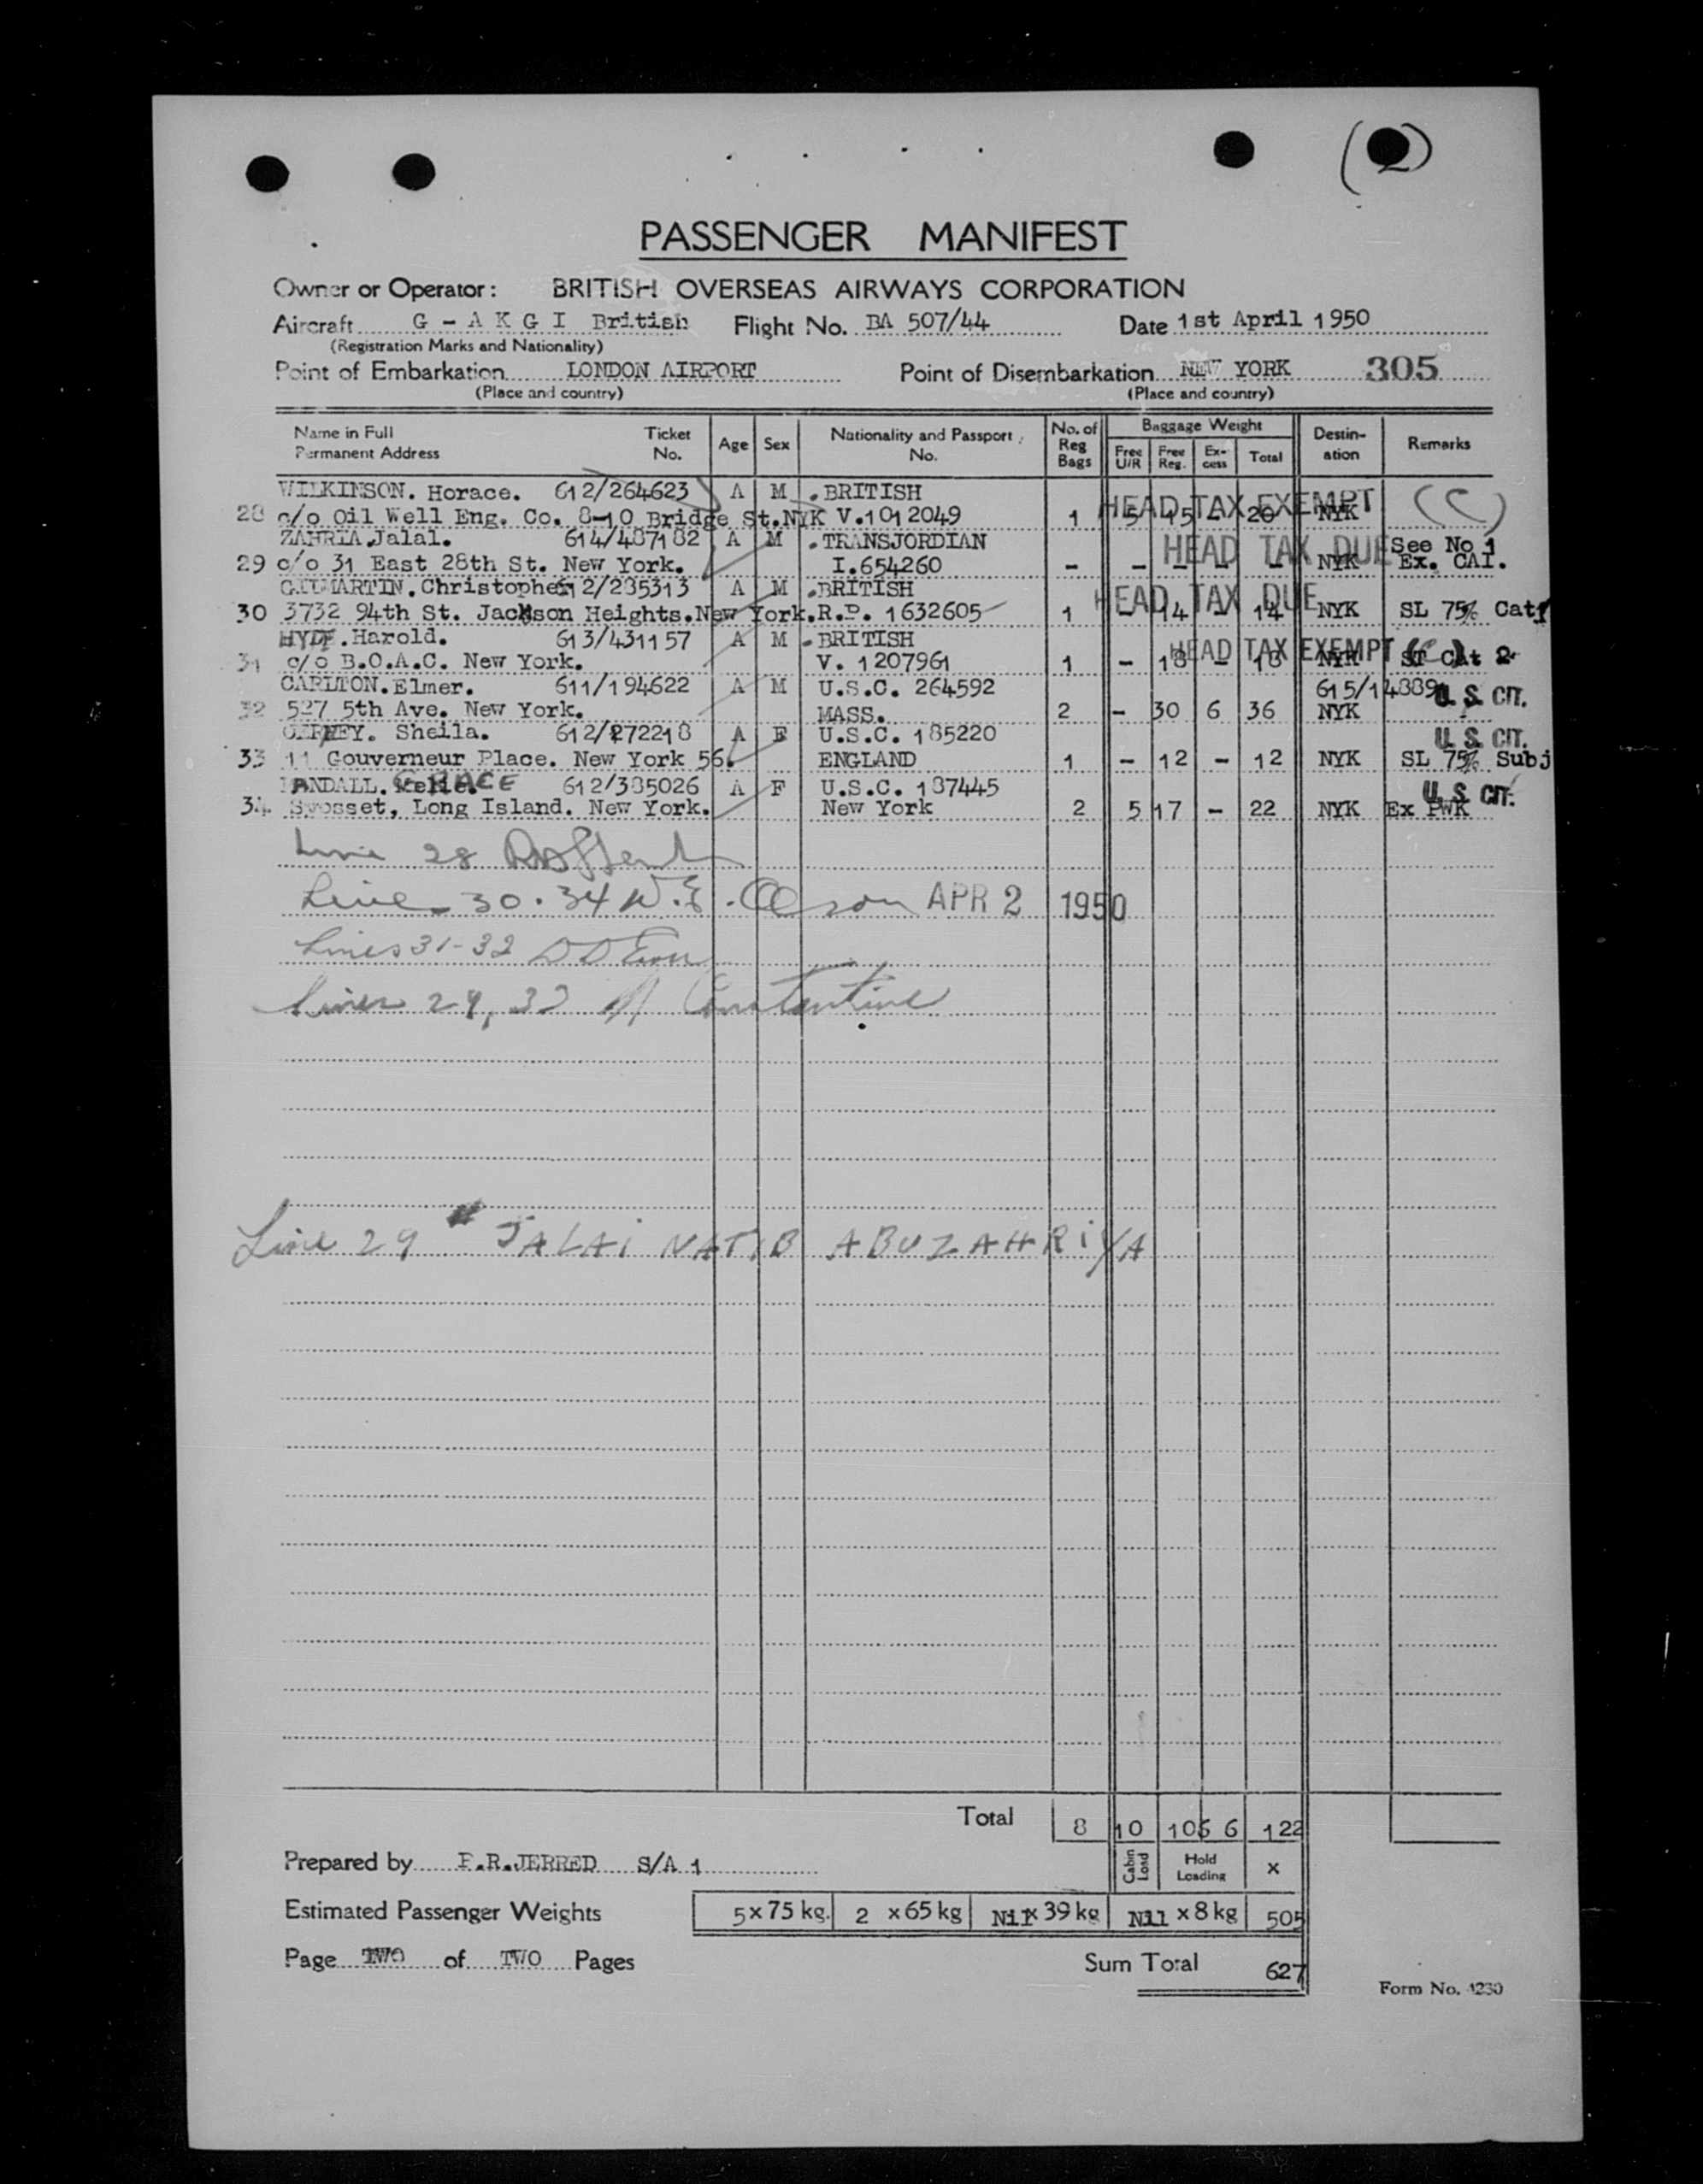 (2)
PASSENGER MANIFEST
Owner or Operator: BRITISH OVERSEAS AIRWAYS CORPORATION
Aircraft G - A K G I British Flight No. BA 507/44 Date 1st April 1950
(Registration Marks and Nationality)
Point of Embarkation LONDON AIRPORT Point of Disembarkation NEW YORK 305
(Place and country) (Place and country)
Name in Full Permanent Address Ticket No. Age Sex Nationality and Passport No. No. of Reg Bags Baggage Weight Free U/R Free Reg. Ex-cess Total Destin-ation Remarks
WILKINSON. Horace. 612/264623 A M .BRITISH HEAD TAX EXEMPT (C)
28 c/o Oil Well Eng. Co. 8-10 Bridge St.NYK V.1012049 1 5 15 - 20 NYK
ZAHRIA.Jalal. 614/487182 A M .TRANSJORDIAN HEAD TAX DUE See No 1
29 c/o 31 East 28th St. New York. I.654260 - - - - - NYK Ex. CAI.
GILMARTIN.Christopher 612/285313 A M .BRITISH HEAD TAX DUE
30 3732 94th St. Jackson Heights.New York.R.P. 1632605 1 - 14 - 14 NYK SL 75% Cat1
HYDE.Harold. 613/431157 A M .BRITISH HEAD TAX EXEMPT (C)
31 c/o B.O.A.C. New York. V. 1207961 1 - 18 - 18 NYK ST Cat 2
CARLTON.Elmer. 611/194622 A M U.S.C. 264592 615/14889 U.S. CIT.
32 527 5th Ave. New York. MASS. 2 - 30 6 36 NYK
Sheila. 612/272218 A F U.S.C. 185220 U.S. CIT.
33 11 Gouverneur Place. New York 56. ENGLAND 1 - 12 - 12 NYK SL 75% Subj
RANDALL. GRACE 612/385026 A F U.S.C. 187445 U.S. CIT.
34 Syosset, Long Island. New York. New York 2 5 17 - 22 NYK Ex PWK
Line 28
Line 30.34 W.E. Olson APR 2 1950
Lines 31-32
Lines 29, 33 Constantine
Line 29 " JALAI NATIB ABUZAHRIYA
Total 8 10 106 6 122
Prepared by F.R.JERRED S/A 1 Cabin Load Hold Loading x
Estimated Passenger Weights 5 x 75 kg. 2 x 65 kg Nil x 39 kg Nil x 8 kg 505
Page TWO of TWO Pages Sum Total 627
Form No. 1230